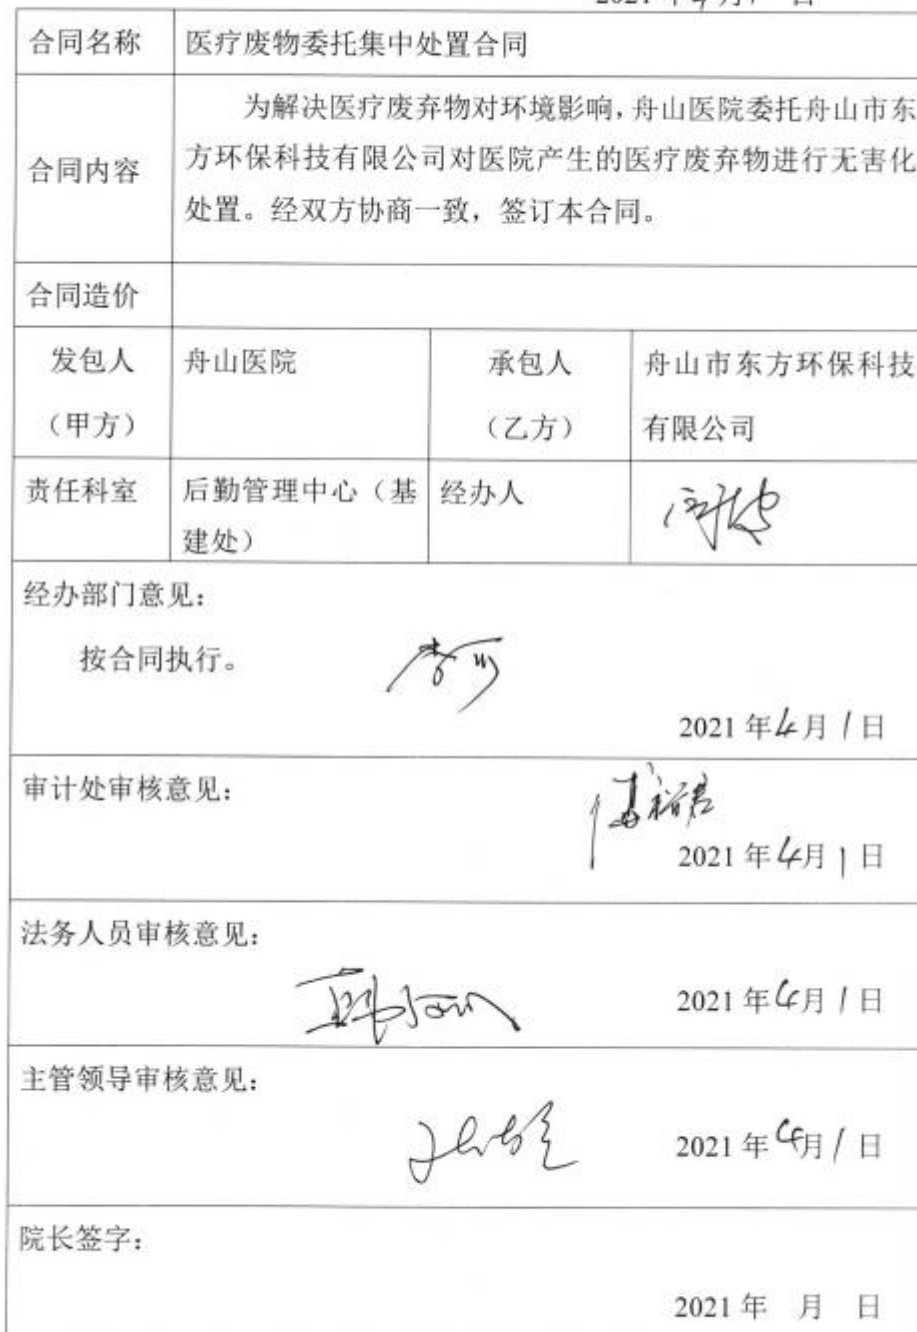 合同名称 医疗废物委托集中处置合同
合同内容
为解决医疗废弃物对环境影响，舟山医院委托舟山市东
方环保科技有限公司对医院产生的医疗废弃物进行无害化
处置。经双方协商一致，签订本合同。
合同造价
发包人
（甲方）
舟山医院
承包人
（乙方）
舟山市东方环保科技
有限公司
责任科室
后勤管理中心（基
建处）
经办人
经办部门意见：
按合同执行。
2021年4月1日
审计处审核意见：
2021年4月1日
法务人员审核意见：
2021年4月1日
主管领导审核意见：
2021年4月1日
院长签字：
2021年 月 日